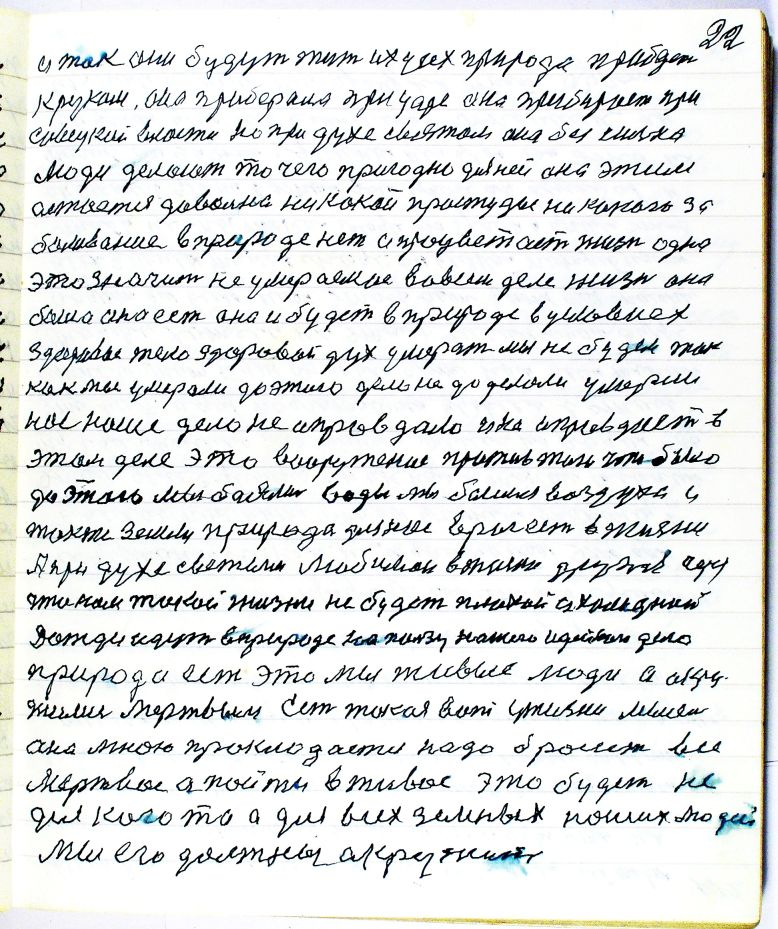 22
и так они будут жит их усех природа прибдет
кругом, она приберала при царе она прибирает при
совецкой власти но при духе святом она без силна
люди делают то чего природно для ней она этим
астается давольна никакой простуды никакого за
балевание в природе нет а процветает жизн одна
это значит не умераемое во всем деле жизн она
была она ест она и будет в природе в условиях
Здоровое тело здоровай дух умерат мы не будем так
как мы умерали до этого дело не доделали умерли
нас наше дело не оправдало и на оправдает в
этом деле это вооружение против том что было
до этого мы боялис воды мы боялис воздуха и
также земли природа для нас враг ест в жизни
А при духе светым любимом в жизни друзей
что нам такой жизни не будет плохой и холодной
Дожди идут в природе на ползу нашего идейнаго дело
природа ест это мы живые люди а окру
жили мертвым Ест такая вот у жизни
она мною прокладается надо бросит все
мертвое а пойти в живое это будет не
для кого то а для всех земных наших людей
мы его должны окружит